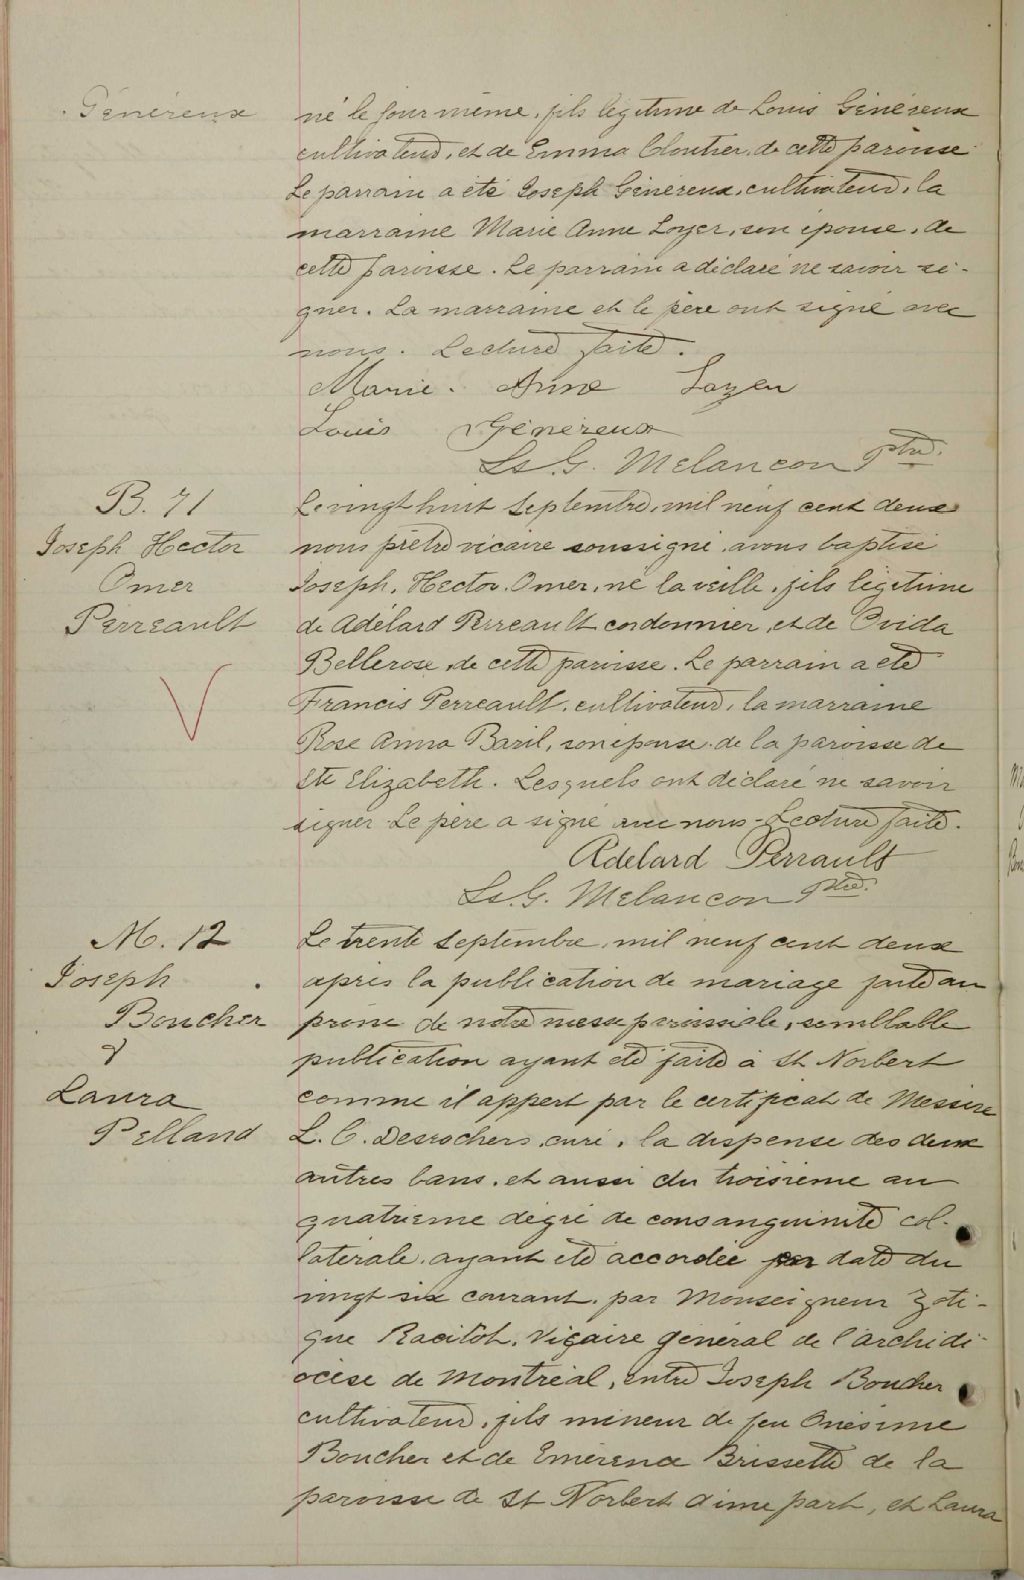 Généreux
né le jour même, fils légitime de Louis Généreux
cultivateur, et de Emma Cloutier, de cette paroisse
Le parrain a été Joseph Généreux, cultivateur, la
marraine Marie Anne Loyer, son épouse, de
cette paroisse. Le parrain a déclaré ne savoir si-
gner. La marraine et le père ont signé avec
nous. Lecture faite.
Marie. Anne Loyer
Louis Généreux
Ls. G. Melancon Ptre.
B. 71
Joseph Hector
Omer
Perreault
Le vingt huit Septembre, mil neuf cent deux
nous prêtre vicaire soussigné, avons baptisé
Joseph, Hector, Omer, né la veille, fils légitime
de Adélard Perreault cordonnier, et de Ovida
Bellerose, de cette paroisse. Le parrain a été
Francis Perreault, cultivateur, la marraine
Rose Anna Baril, son épouse, de la paroisse de
Ste Elizabeth. Lesquels ont déclaré ne savoir
signer Le père a signé avec nous - Lecture faite.
Adelard Perrault
Ls. G. Melancon Ptre.
M. 12
Joseph
Boucher
&
Laura
Pelland
Le trente Septembre, mil neuf cent deux
après la publication de mariage faite au
prône de notre messe paroissiale, semblable
publication ayant été faite à St Norbert
comme il appert par le certificat de Messire
L. C. Desrochers, curé, la dispense des deux
autres bans, et aussi du troisième au
quatrième dégré de consanguinité col-
latérale, ayant été accordée par date du
vingt six courant, par Monseigneur Zoti-
que Racicot, Vicaire général de l'archidi-
ocèse de Montréal, entre Joseph Boucher
cultivateur, fils mineur de feu Onésime
Boucher et de Emérence Brissette de la
paroisse de St Norbert d'une part, et Laura